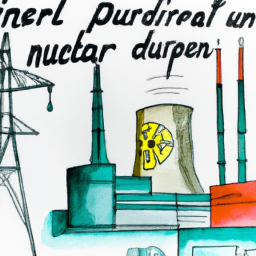 inerl purdireat un
nuctar durpen